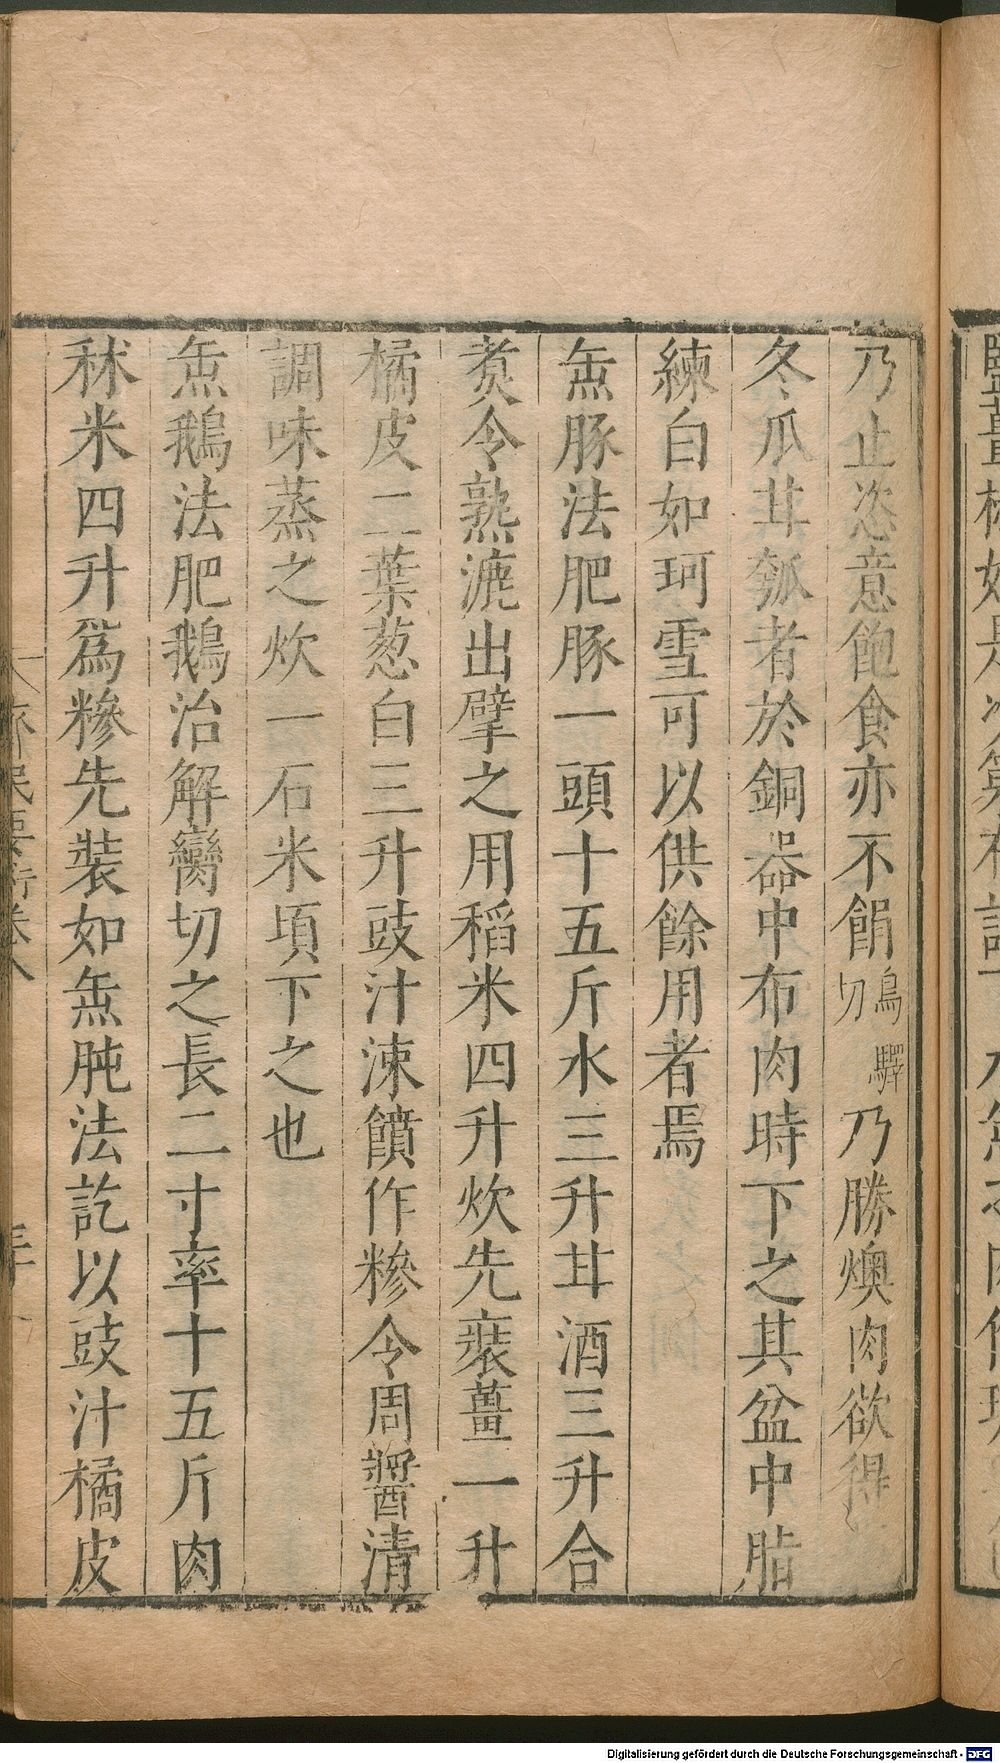 乃止恣意飽食亦不餶烏驛切乃勝燠肉欲得
冬瓜甘瓠者於銅器中布肉時下之其盆中脂
練白如珂雪可以供餘用者焉
缹豚法肥豚一頭十五斤水三升甘酒三升合
煑令熟漉出擘之用稻米四升炊先裝薑一升
橘皮二葉葱白三升豉汁涑饙作糝令周醬清
調味蒸之炊一石米頃下之也
缹鵝法肥鵝治解臠切之長二寸率十五斤肉
秫米四升爲糝先裝如缹肫法訖以豉汁橘皮
齊民要術卷八
Digitalisierung gefördert durch die Deutsche Forschungsgemeinschaft - DFG